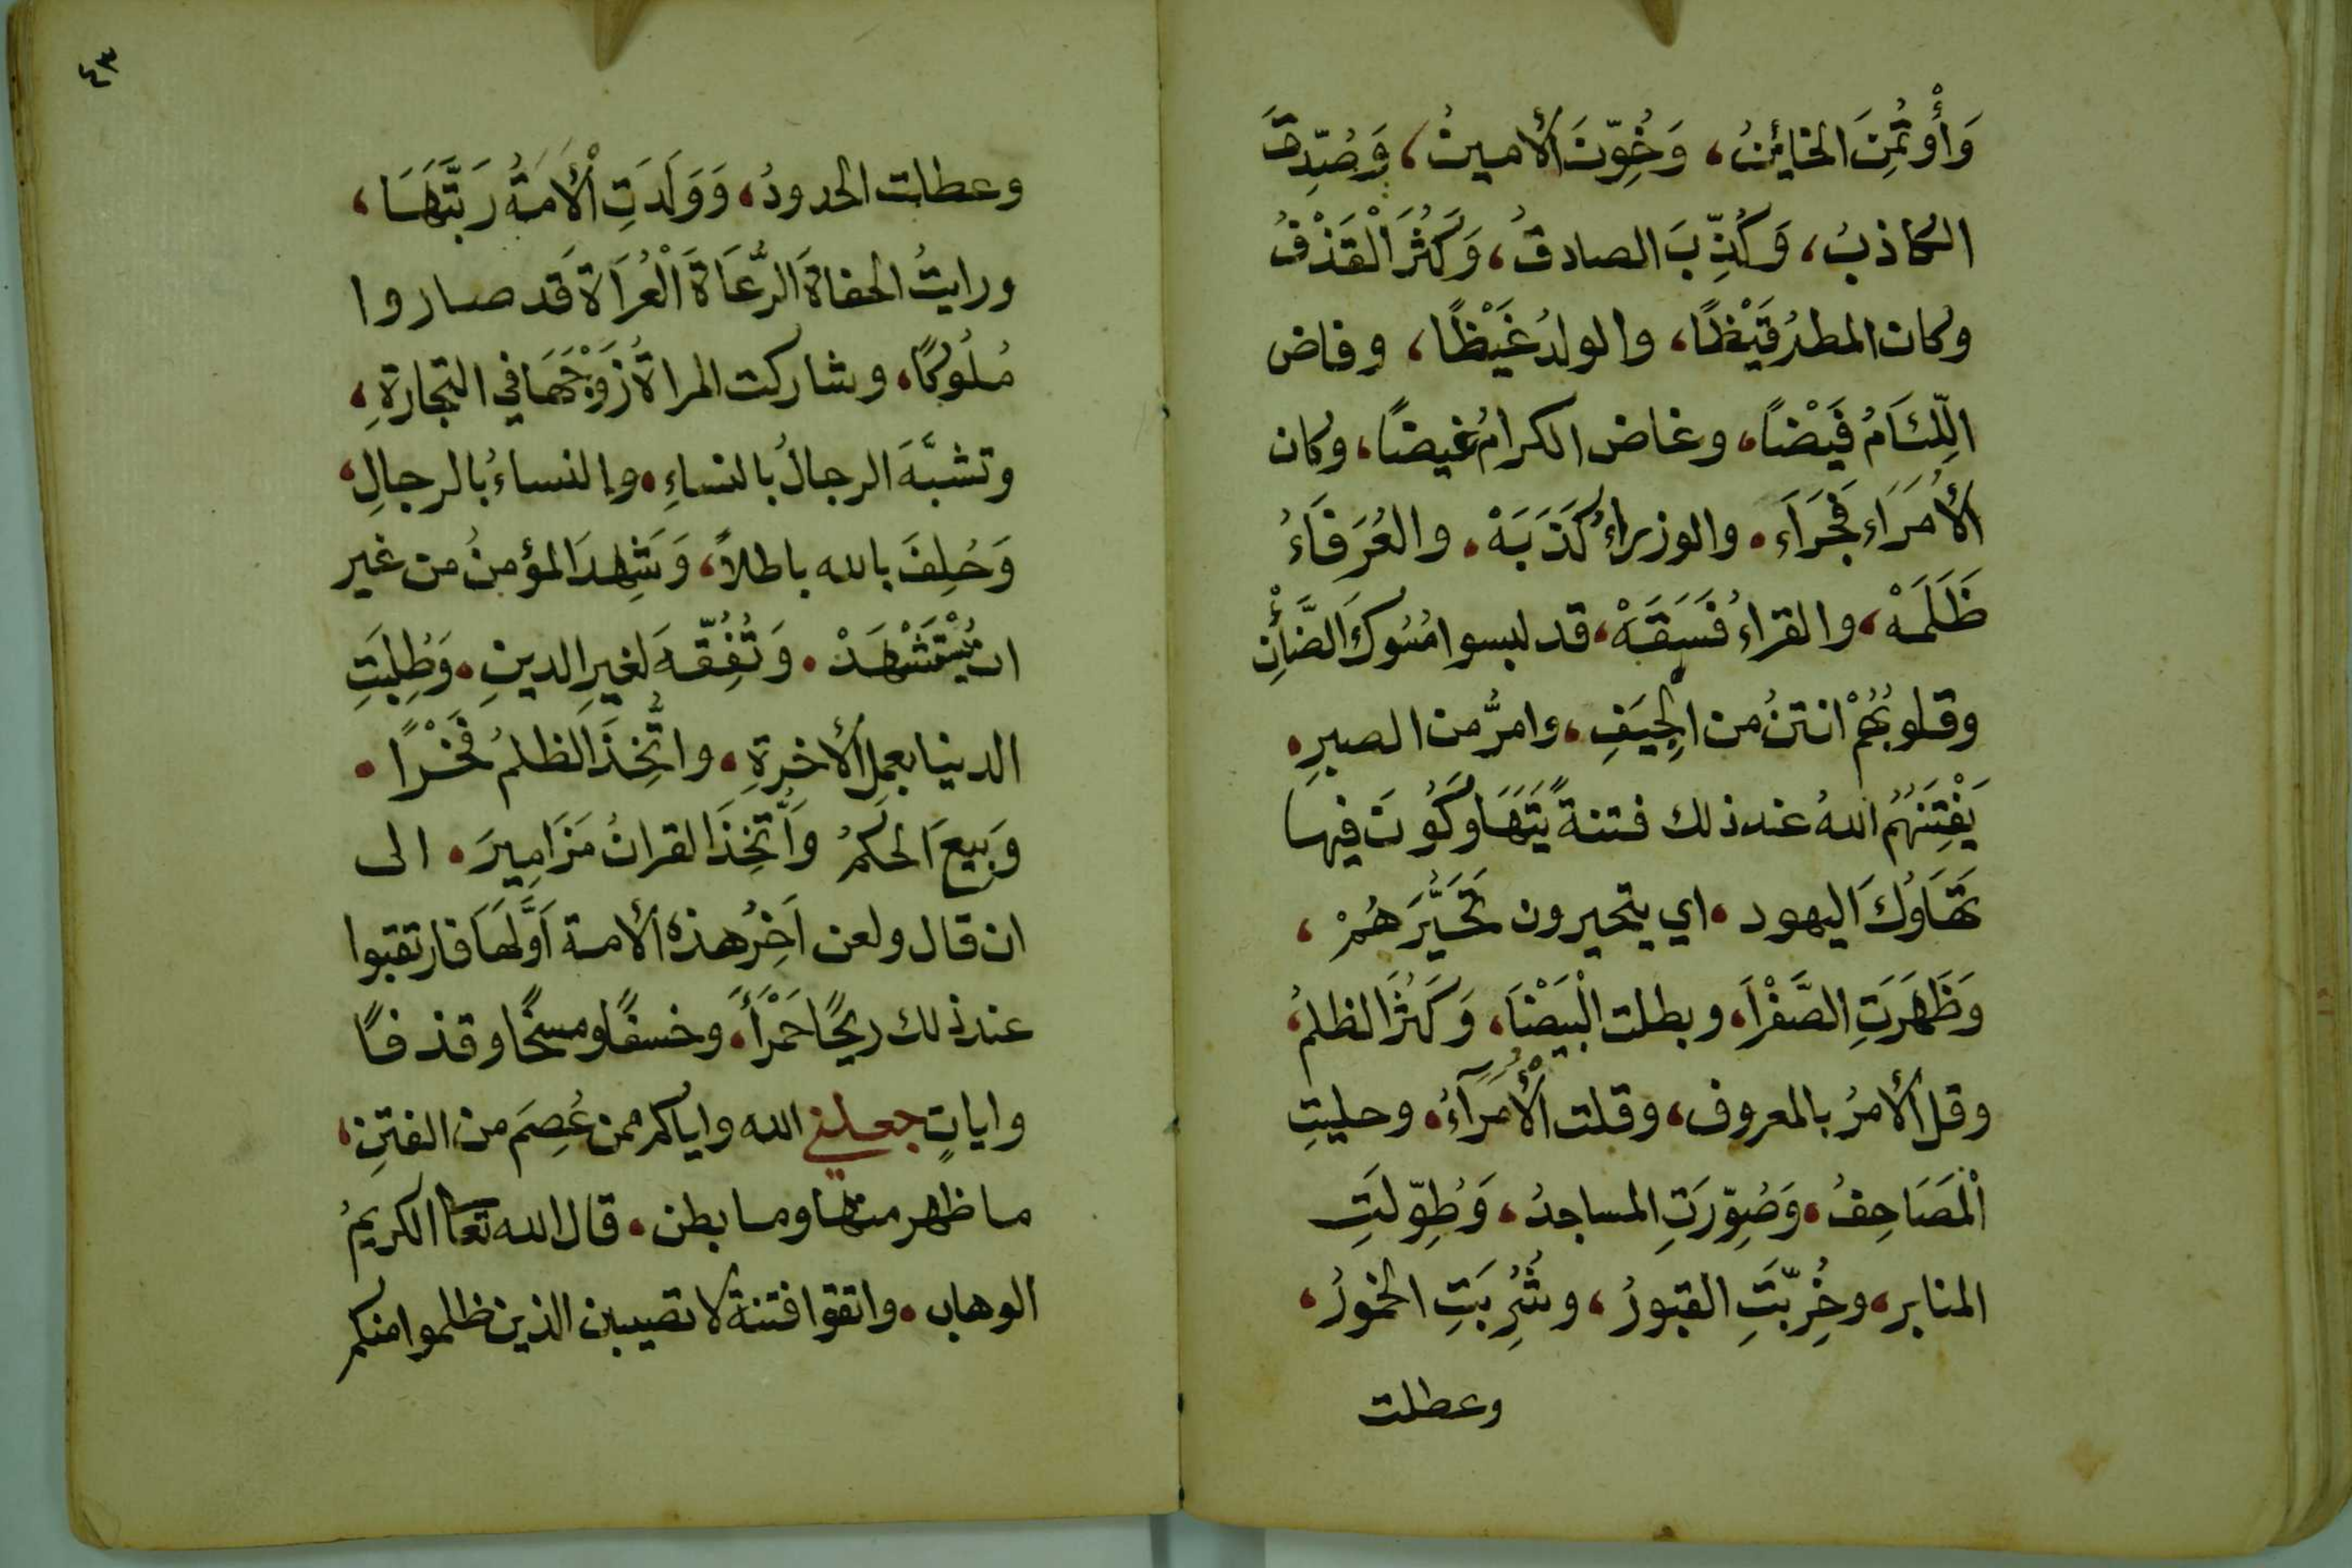 وَأُوْتُمِنَ الخائنُ، وَخُوِّنَ الأمينُ، وَصُدِّقَ
الكاذبُ، وَكُذِّبَ الصادقُ، وَكَثُرَ اَلْقَذْفُ
وكان المطرُ قَيْظًا، والولدُ غَيْظًا، وفاض
اللِّئَامُ فَيْضًا، وغاض الكرامُ غيضًا، وكان
الأُمَرَاء فَجَرَاَء. والوزراءُ كَذَبَهْ. والعُرَفَاءُ
ظَلَمَهْ، والقراءُ فَسَقَهْ، قد لبسوا مُسُوكَ الضَّأْنِ
وقلوبُهُمْ انتنُ من الجِيَفِ، وامرُّ من الصبرِ.
يَفْتِنُهُمُ اللهُ عند ذلك فتنةً يَتَهَاوَكُونَ فيها
تَهَاوُكَ اليهود. اي يتحيرون تَحَيُّرَهُمْ،
وَظَهَرَتِ الصَّفْرَا، وبطلت الْبَيْضَا، وَكَثُرَ الظلمُ،
وقل الأمرُ بالمعروف، وقلت الْأُمَرَآءُ. وحليتِ
اَلْمَصَاحِفُ. وَصُوِّرَتِ المساجدُ، وَطُوِّلَتِ
المنابر، وخُرِّبَتِ القبورُ، وشُرِبَتِ الخمورُ،
وعطلت
٤٣
وعطلت الحدودُ، وَوَلَدَتِ اْلأَمَةُ رَبَّتَهَا،
ورايتُ الحفاةَ الرُّعَاةَ اَلْعُرَاةَ قد صاروا
مُلُوكًا، وشاركت المراةُ زَوْجَهَا في التجارةِ،
وتشبَّهَ الرجالُ بالنساءِ. والنساءُ بالرجالِ،
وَحُلِفَ بالله باطلاً، وَشَهِدَ المؤمنُ من غير
ان يُسْتَشْهَدْ. وَتُفُقِّهَ لغيرِ الدينِ. وَطُلِبَتِ
الدنيا بعمل الأخرةِ. واتُّخِذَ الظلمُ فَخْرًا.
وَبِيعَ الحكمُ وَاُتُّخِذَ القرانُ مَزَامِيرَ. الى
ان قال ولعن اَخِرُ هذه الأمة اَوَّلَهَا فارتقبوا
عند ذلك ريحًا حَمْرَأَ. وخسفًا ومسخًا وقذفًا
واياتٍ جعلني الله واياكم ممن عُصِمَ من الفتنِ،
ما ظهر منها وما بطن. قال الله تعا الكريمُ
الوهاب. واتقوا فتنة لا تصيبن الذين ظلموا منكم